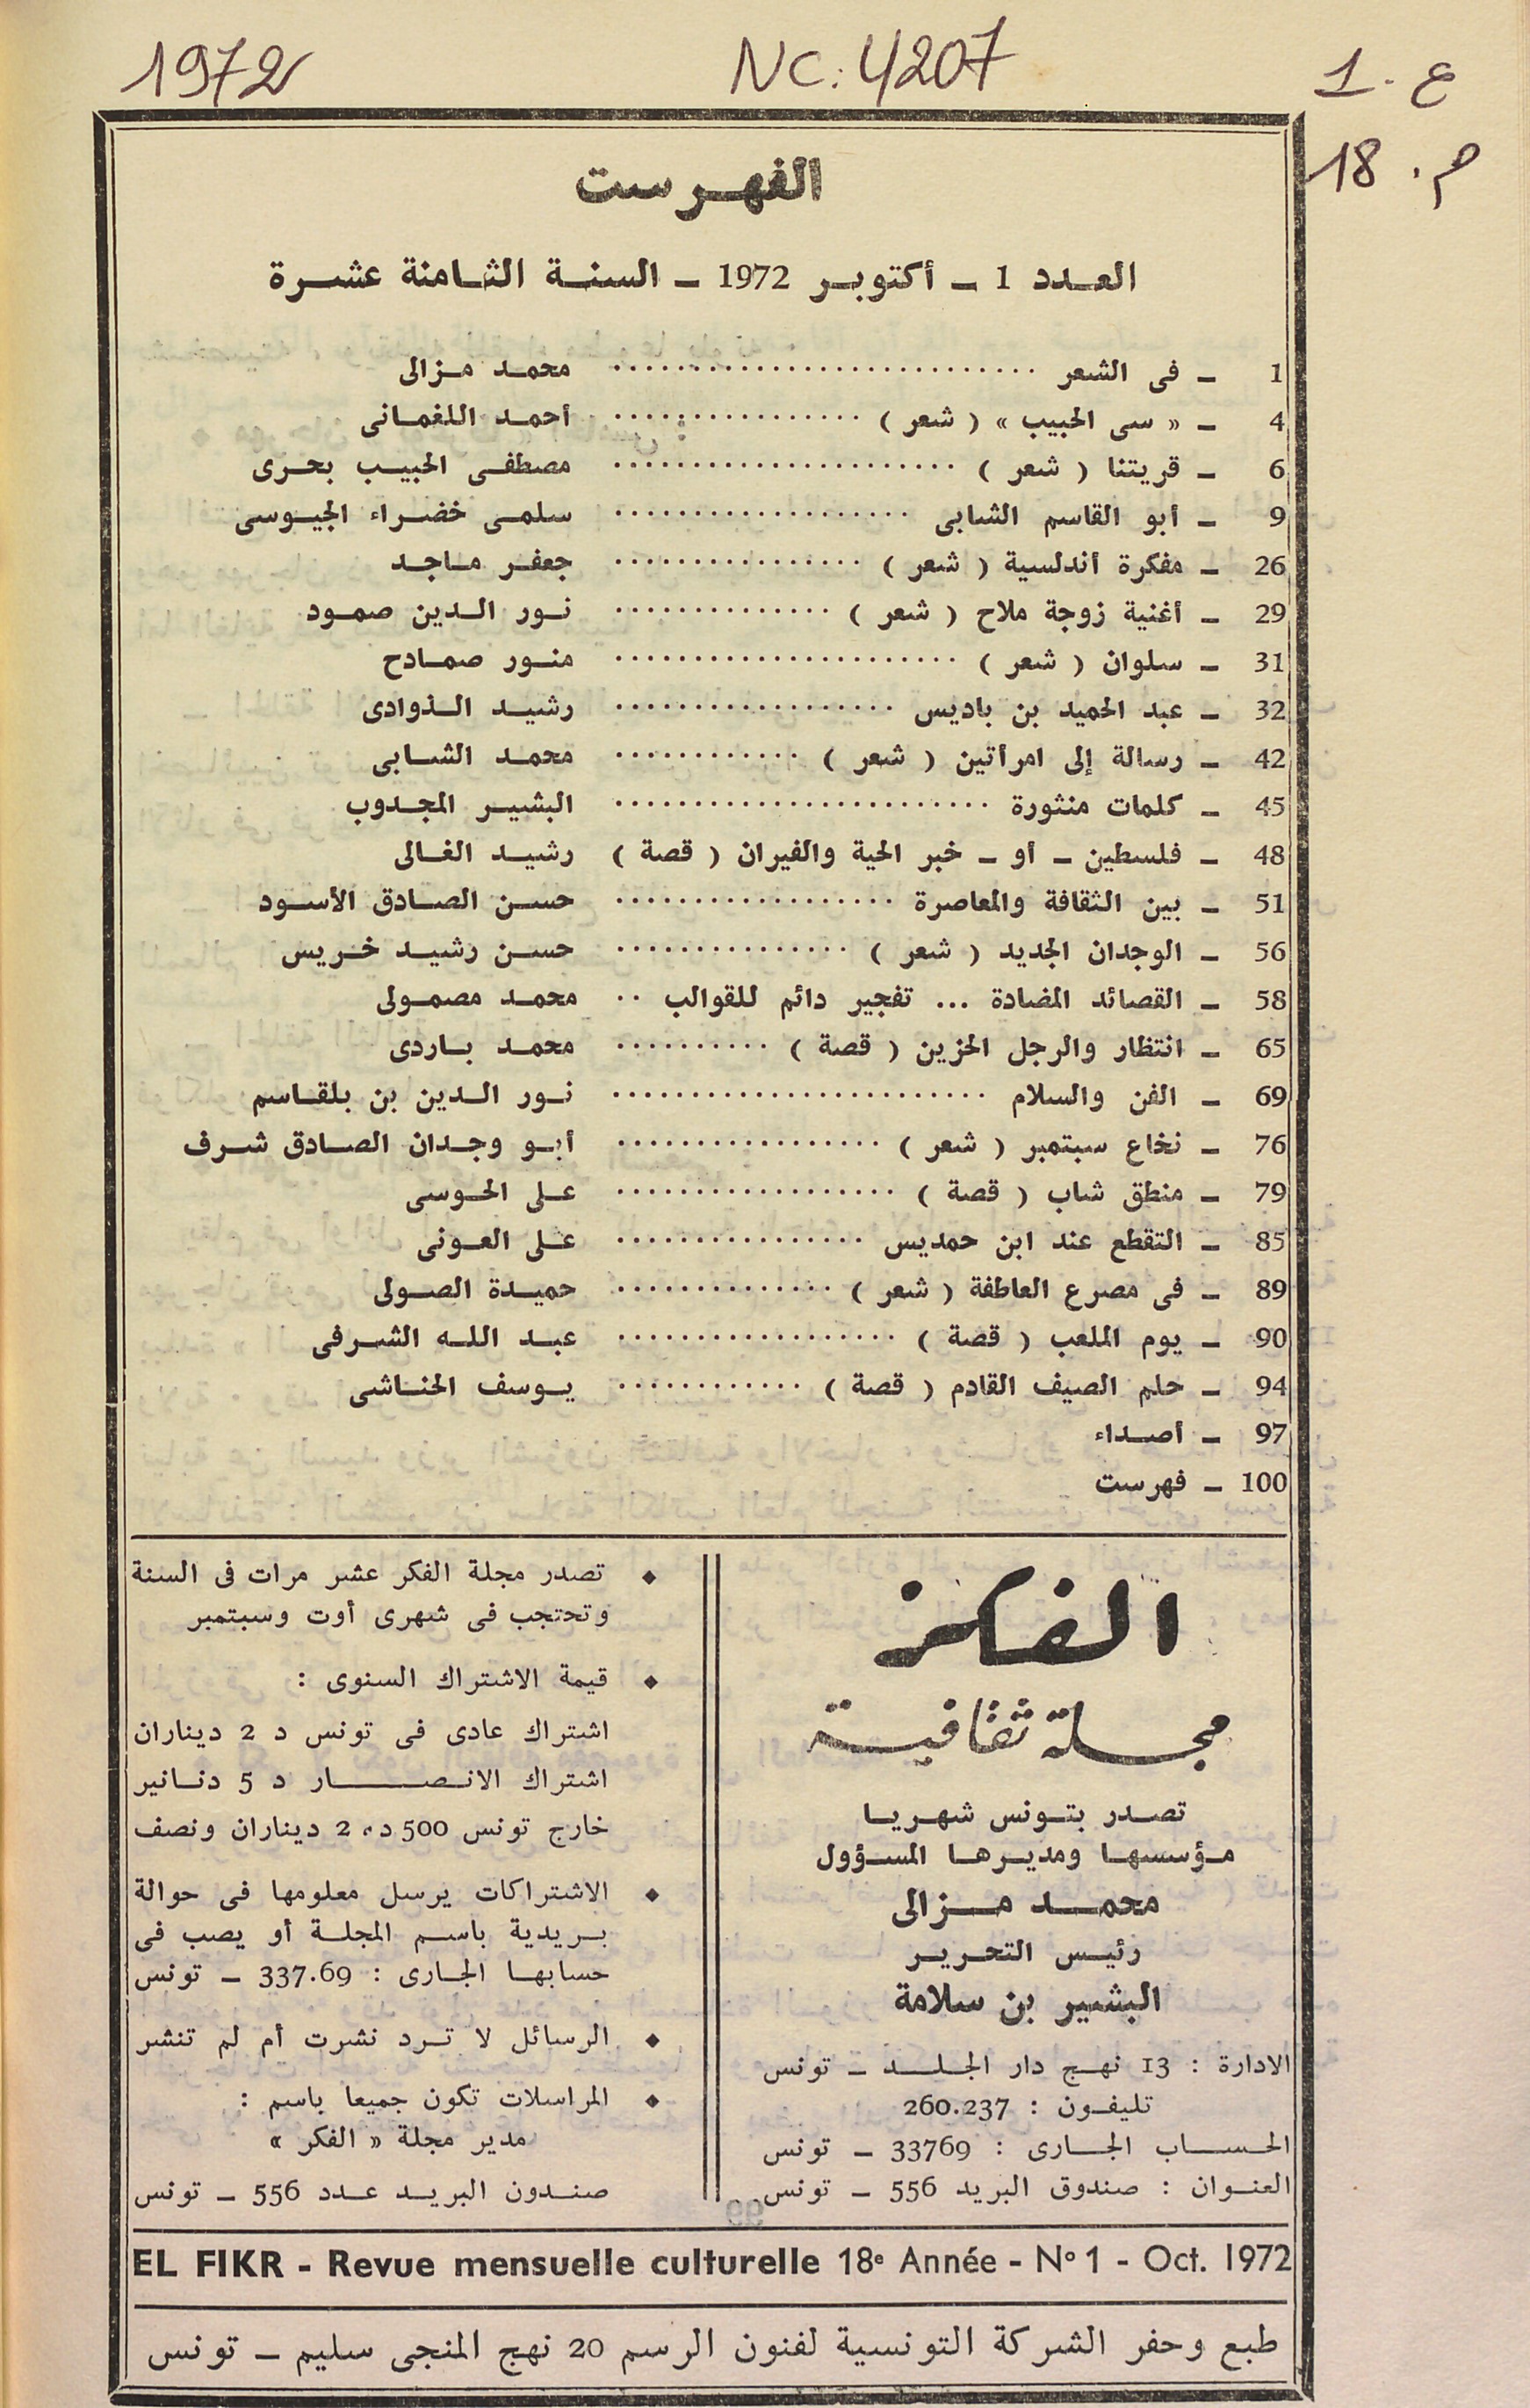 1972
NC: 4207
ع. 1
م. 18
الفهرست
العدد 1 ـ أكتوبر 1972 ـ السنة الثامنة عشرة
1 ـ فى الشعر ........................... محمد مزالى
4 ـ « سى الحبيب » ( شعر ) ................ أحمد اللغمانى
6 ـ قريتنا ( شعر ) ...................... مصطفى الحبيب بحرى
9 ـ أبو القاسم الشابى ................... سلمى خضراء الجيوسى
26 ـ مفكرة أندلسية ( شعر ) ................ جعفر ماجد
29 ـ أغنية زوجة ملاح ( شعر ) .............. نور الدين صمود
31 ـ سلوان ( شعر ) ...................... منور صمادح
32 ـ عبد الحميد بن باديس .................. رشيد الذوادى
42 ـ رسالة إلى امرأتين ( شعر ) ............ محمد الشابى
45 ـ كلمات منثورة ........................ البشير المجدوب
48 ـ فلسطين ـ أو ـ خبر الحية والفيران ( قصة ) رشيد الغالى
51 ـ بين الثقافة والمعاصرة .................. حسن الصادق الأسود
56 ـ الوجدان الجديد ( شعر ) ............... حسن رشيد خريس
58 ـ القصائد المضادة ... تفجير دائم للقوالب .. محمد مصمولى
65 ـ انتظار والرجل الحزين ( قصة ) .......... محمد باردى
69 ـ الفن والسلام ........................ نور الدين بن بلقاسم
76 ـ نخاع سبتمبر ( شعر ) ................. أبو وجدان الصادق شرف
79 ـ منطق شاب ( قصة ) .................. على الحوسى
85 ـ التقطع عند ابن حمديس ................ على العونى
89 ـ فى مصرع العاطفة ( شعر ) .............. حميدة الصولى
90 ـ يوم الملعب ( قصة ) .................. عبد الله الشرفى
94 ـ حلم الصيف القادم ( قصة ) ............ يوسف الحناشى
97 ـ أصداء
100 ـ فهرست
الفكر
مجلة ثقافية
تصدر بتونس شهريا
مؤسسها ومديرها المسؤول
محمد مزالى
رئيس التحرير
البشير بن سلامة
الادارة : 13 نهج دار الجلد ـ تونس
تليفون : 260.237
الحساب الجارى : 33769 ـ تونس
العنوان : صندوق البريد 556 ـ تونس
◆ تصدر مجلة الفكر عشر مرات فى السنة
وتحتجب فى شهرى أوت وسبتمبر
◆ قيمة الاشتراك السنوى :
اشتراك عادى فى تونس د 2 ديناران
اشتراك الانصار د 5 دنانير
خارج تونس 500 د، 2 ديناران ونصف
◆ الاشتراكات يرسل معلومها فى حوالة
بريدية باسم المجلة أو يصب فى
حسابها الجارى : 337.69 ـ تونس
◆ الرسائل لا ترد نشرت أم لم تنشر
◆ المراسلات تكون جميعا باسم :
مدير مجلة « الفكر »
صندون البريد عدد 556 ـ تونس
EL FIKR - Revue mensuelle culturelle 18e Année - No 1 - Oct. 1972
طبع وحفر الشركة التونسية لفنون الرسم 20 نهج المنجى سليم ـ تونس